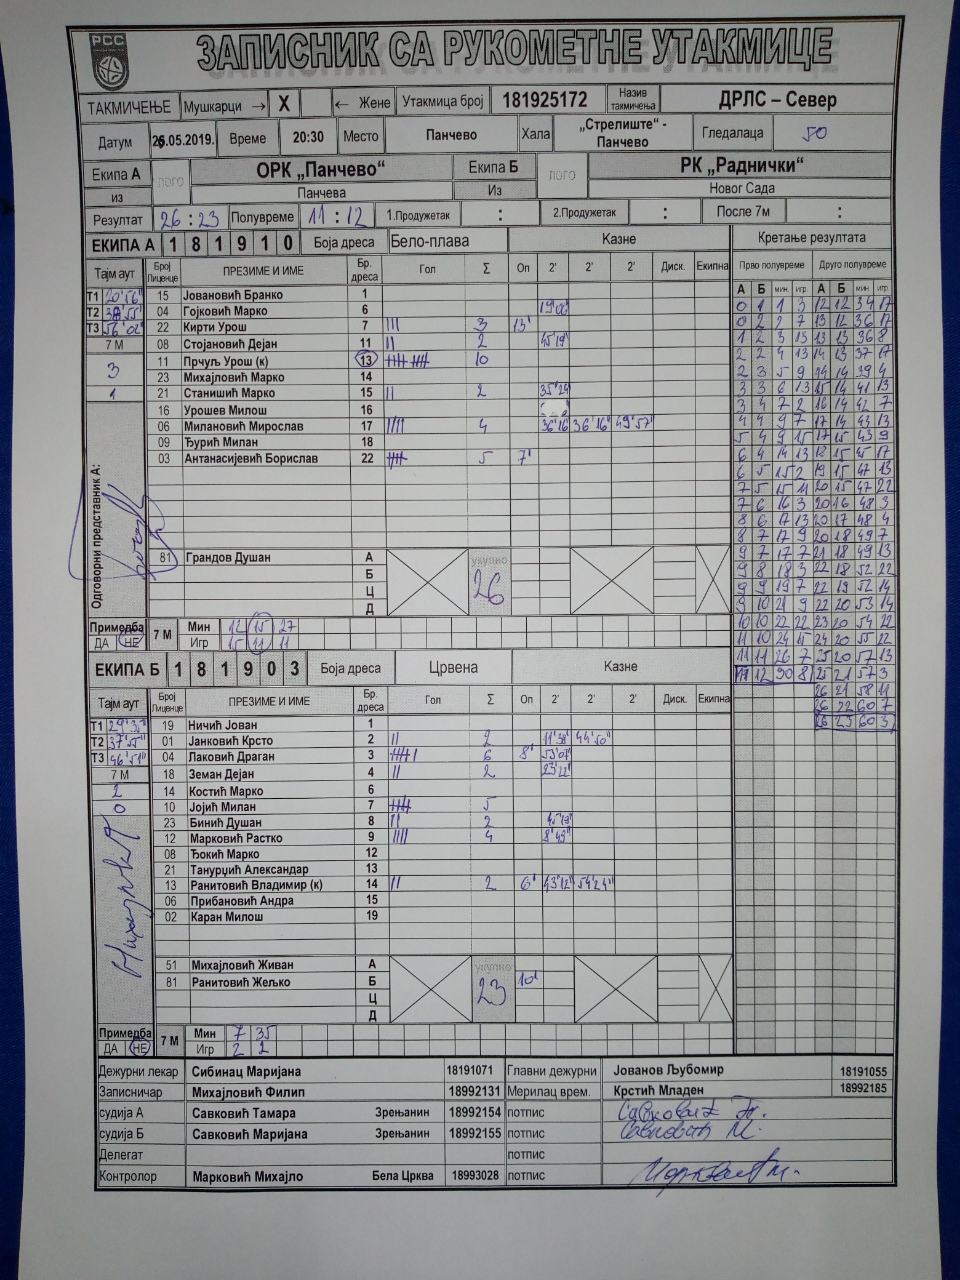 РСС ЗАПИСНИК СА РУКОМЕТНЕ УТАКМИЦЕ
ТАКМИЧЕЊЕ Мушкарци → X ← Жене Утакмица број 181925172 Назив такмичења ДРЛС – Север
Датум 26.05.2019. Време 20:30 Место Панчево Хала „Стрелиште“ - Панчево Гледалаца 50
Екипа А ЛОГО ОРК „Панчево“ Екипа Б ЛОГО РК „Раднички“
из Панчева Из Новог Сада
Резултат 26 : 23 Полувреме 11 : 12 1.Продужетак : 2.Продужетак : После 7м :
ЕКИПА А 1 8 1 9 1 0 Боја дреса Бело-плава Казне Кретање резултата
Тајм аут Број Лиценце ПРЕЗИМЕ И ИМЕ Бр. дреса Гол Σ Оп 2' 2' 2' Диск. Екипна Прво полувреме Друго полувреме
А Б мин. игр. А Б мин. игр.
Т1 20'56" 15 Јовановић Бранко 1
Т2 04 Гојковић Марко 6
Т3 56'02" 22 Кирти Урош 7 III 3 13'
7 М 08 Стојановић Дејан 11 II 2 45'19"
3 11 Прчуљ Урош (к) 13 10
23 Михајловић Марко 14
1 21 Станишић Марко 15 II 2 35'24"
16 Урошев Милош 16
06 Милановић Мирослав 17 IIII 4 36'16" 36'16" 49'57"
09 Ђурић Милан 18
03 Антанасијевић Борислав 22 5 7'
Одговорни представник А:
81 Грандов Душан А укупно 26
Б
Ц
Д
Примедба ДА НЕ 7 М Мин 12 15 27
Игр 15 11 11
0 1 1 3 12 12 34 17
0 2 2 7 13 12 36 17
1 2 3 15 13 13 36 8
2 2 4 13 14 13 37 17
2 3 5 9 14 14 39 4
3 3 6 13 15 14 41 13
3 4 7 2 16 14 42 7
4 4 9 7 17 14 43 13
5 4 9 15 17 15 43 9
6 4 14 13 18 15 45 17
6 5 15 2 19 15 47 13
7 5 15 11 20 15 47 22
7 6 16 3 20 16 48 3
8 6 17 13 20 17 48 4
8 7 17 9 20 18 49 7
9 7 17 7 21 18 49 13
9 8 18 3 22 18 52 22
9 9 19 7 22 19 52 14
9 10 21 9 22 20 53 14
10 10 22 22 23 20 54 22
11 10 24 15 24 20 55 22
11 11 26 7 25 20 57 13
11 12 30 8 25 21 57 3
26 21 58 11
26 22 60 7
26 23 60 3
ЕКИПА Б 1 8 1 9 0 3 Боја дреса Црвена Казне
Тајм аут Број Лиценце ПРЕЗИМЕ И ИМЕ Бр. дреса Гол Σ Оп 2' 2' 2' Диск. Екипна
Т1 19 Ничић Јован 1
Т2 37'55" 01 Јанковић Крсто 2 II 2 11'38" 44'50"
Т3 46'51" 04 Лаковић Драган 3 6 8' 53'07"
7 М 18 Земан Дејан 4 II 2 23'22"
2 14 Костић Марко 6
0 10 Јојић Милан 7 5
23 Бинић Душан 8 II 2
12 Марковић Растко 9 IIII 4 8'49"
08 Ђокић Марко 12
21 Танурџић Александар 13
13 Ранитовић Владимир (к) 14 II 2 6' 43'12" 54'24"
06 Прибановић Андра 15
02 Каран Милош 19
51 Михајловић Живан А укупно 23
81 Ранитовић Жељко Б 10'
Ц
Д
Примедба ДА НЕ 7 М Мин 7 35
Игр 2 2
Дежурни лекар Сибинац Маријана 18191071 Главни дежурни Јованов Љубомир 18191055
Записничар Михајловић Филип 18992131 Мерилац врем. Крстић Младен 18992185
судија А Савковић Тамара Зрењанин 18992154 потпис Савковић Т.
судија Б Савковић Маријана Зрењанин 18992155 потпис Савковић М.
Делегат потпис
Контролор Марковић Михајло Бела Црква 18993028 потпис